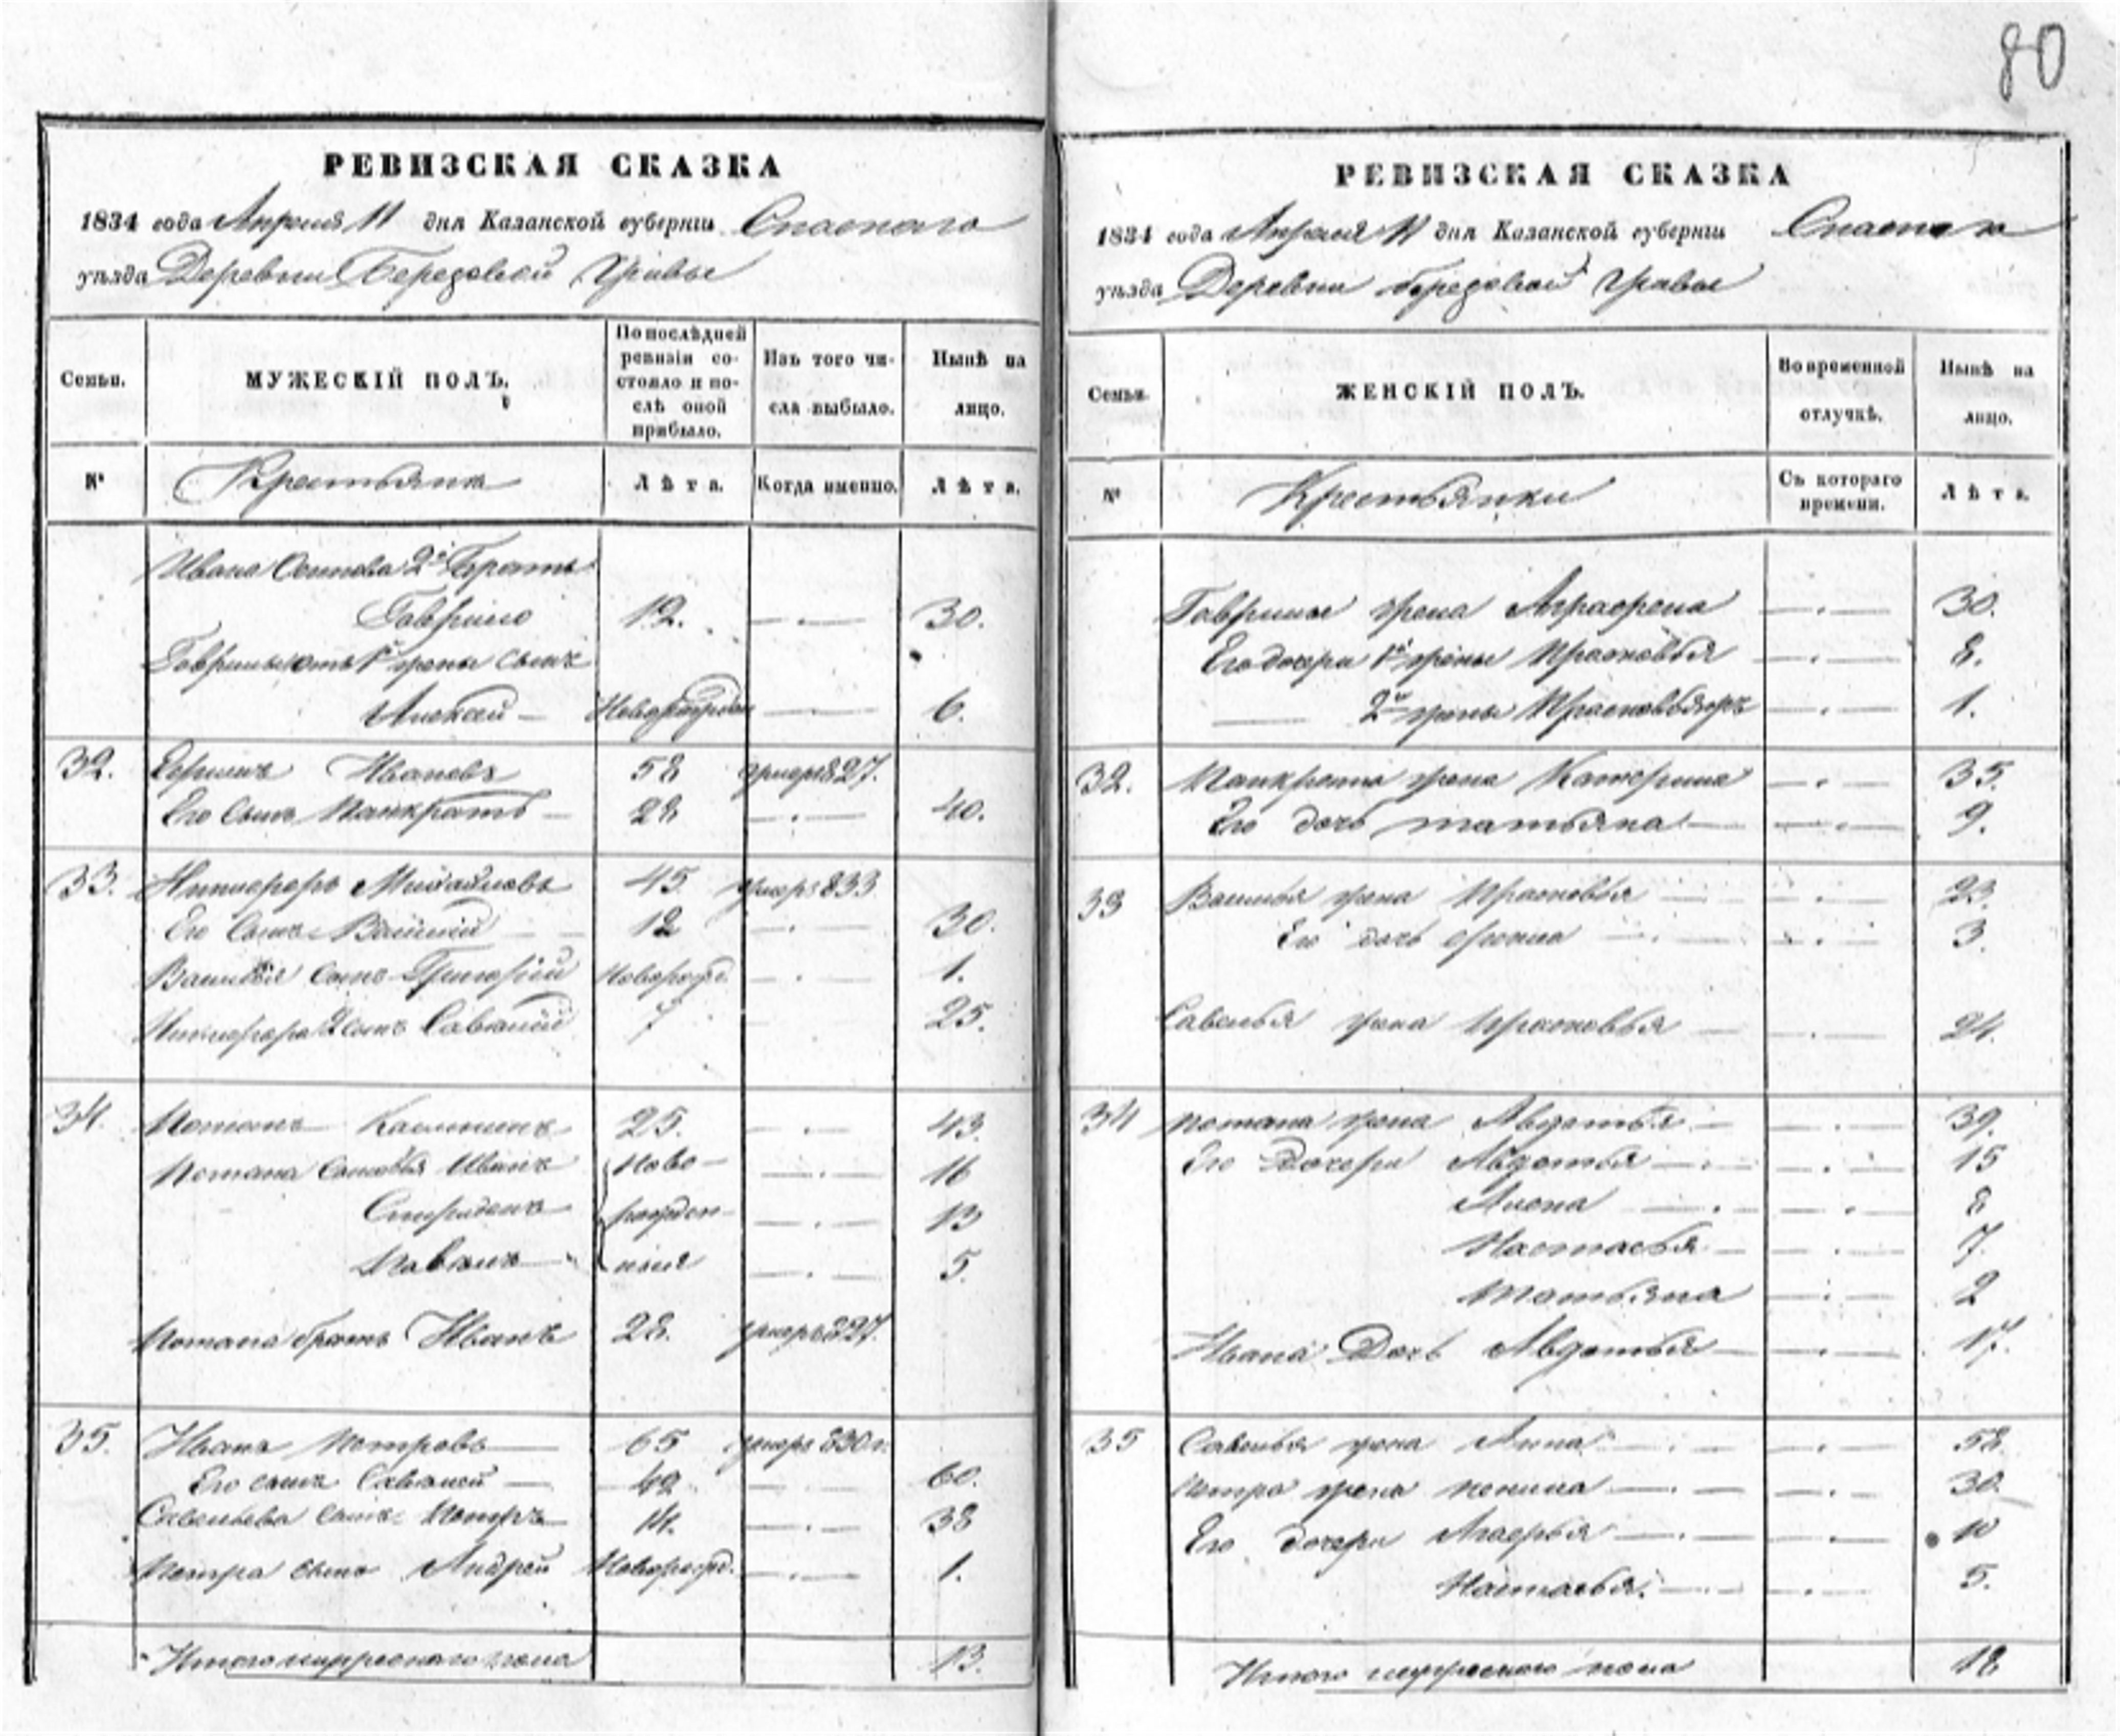 80
РЕВИЗСКАЯ СКАЗКА
1834 года Апреля 11 дня Казанской губерніи Спаскаго
уѣзда Деревни Березовой Гривы
Семьи.
МУЖЕСКІЙ ПОЛЪ.
По послѣдней ревизіи состояло и послѣ оной прибыло.
Изъ того числа выбыло.
Нынѣ на лицо.
№
Крестьяне
Лѣта.
Когда именно.
Лѣта.
Ивана Осипова 2й братъ
Гаврило 12. — 30.
Гаврилы отъ 1й жены сынъ
Алексей — Новорожден — 6.
32. Ивановъ 58 умеръ 827.
Его сынъ Панкратъ — 22 — 40.
33. Никифоръ Михайловъ 45 умеръ 833
Его сынъ Василий 12 — 30.
Василья сынъ Григорий Новорожд. — 1.
Никифора 2й сынъ Савелий 7 25.
34. Потапъ 25. — 43.
Потапа сыновья Иванъ Ново- — 16
Спиридонъ рожден- — 13
Павелъ — ныя — 5.
Потапа братъ Иванъ 28. умеръ 827.
35. Иванъ Петровъ 65 умеръ 830 г.
Его сынъ Савелей — 42 — 60.
Савельева сынъ Петръ — 14. — 38
Петра сынъ Андрей Новорожд. — 1.
Итого мужескаго пола 13.
РЕВИЗСКАЯ СКАЗКА
1834 года Апреля 11 дня Казанской губерніи
уѣзда Деревни березовой Гривы
Семьи.
ЖЕНСКІЙ ПОЛЪ.
Во временной отлучкѣ.
Нынѣ на лицо.
№
Крестьянки
Съ котораго времени.
Лѣта.
Гаврилы жена Аграфена — 30.
Его дочери 1й жены Прасковья — 8.
— 2й жены Прасковья — 1.
32. Панкрата жена Катерина — 35.
Его дочь татьяна — 9.
33 Василья жена Прасковья — 23.
Его дочь — 3.
Савелья жена Прасковья — 24.
34 Потапа жена Авдотья — 39.
Его Дочери Авдотья — 15
Алена — 8
Настасья — 7.
Татьяна — 2
Ивана Дочь Авдотья — 17.
35 Савелья жена Анна — 58.
Петра жена — 30.
Его дочери — 10
Настасья. — 5.
Итого пола 18